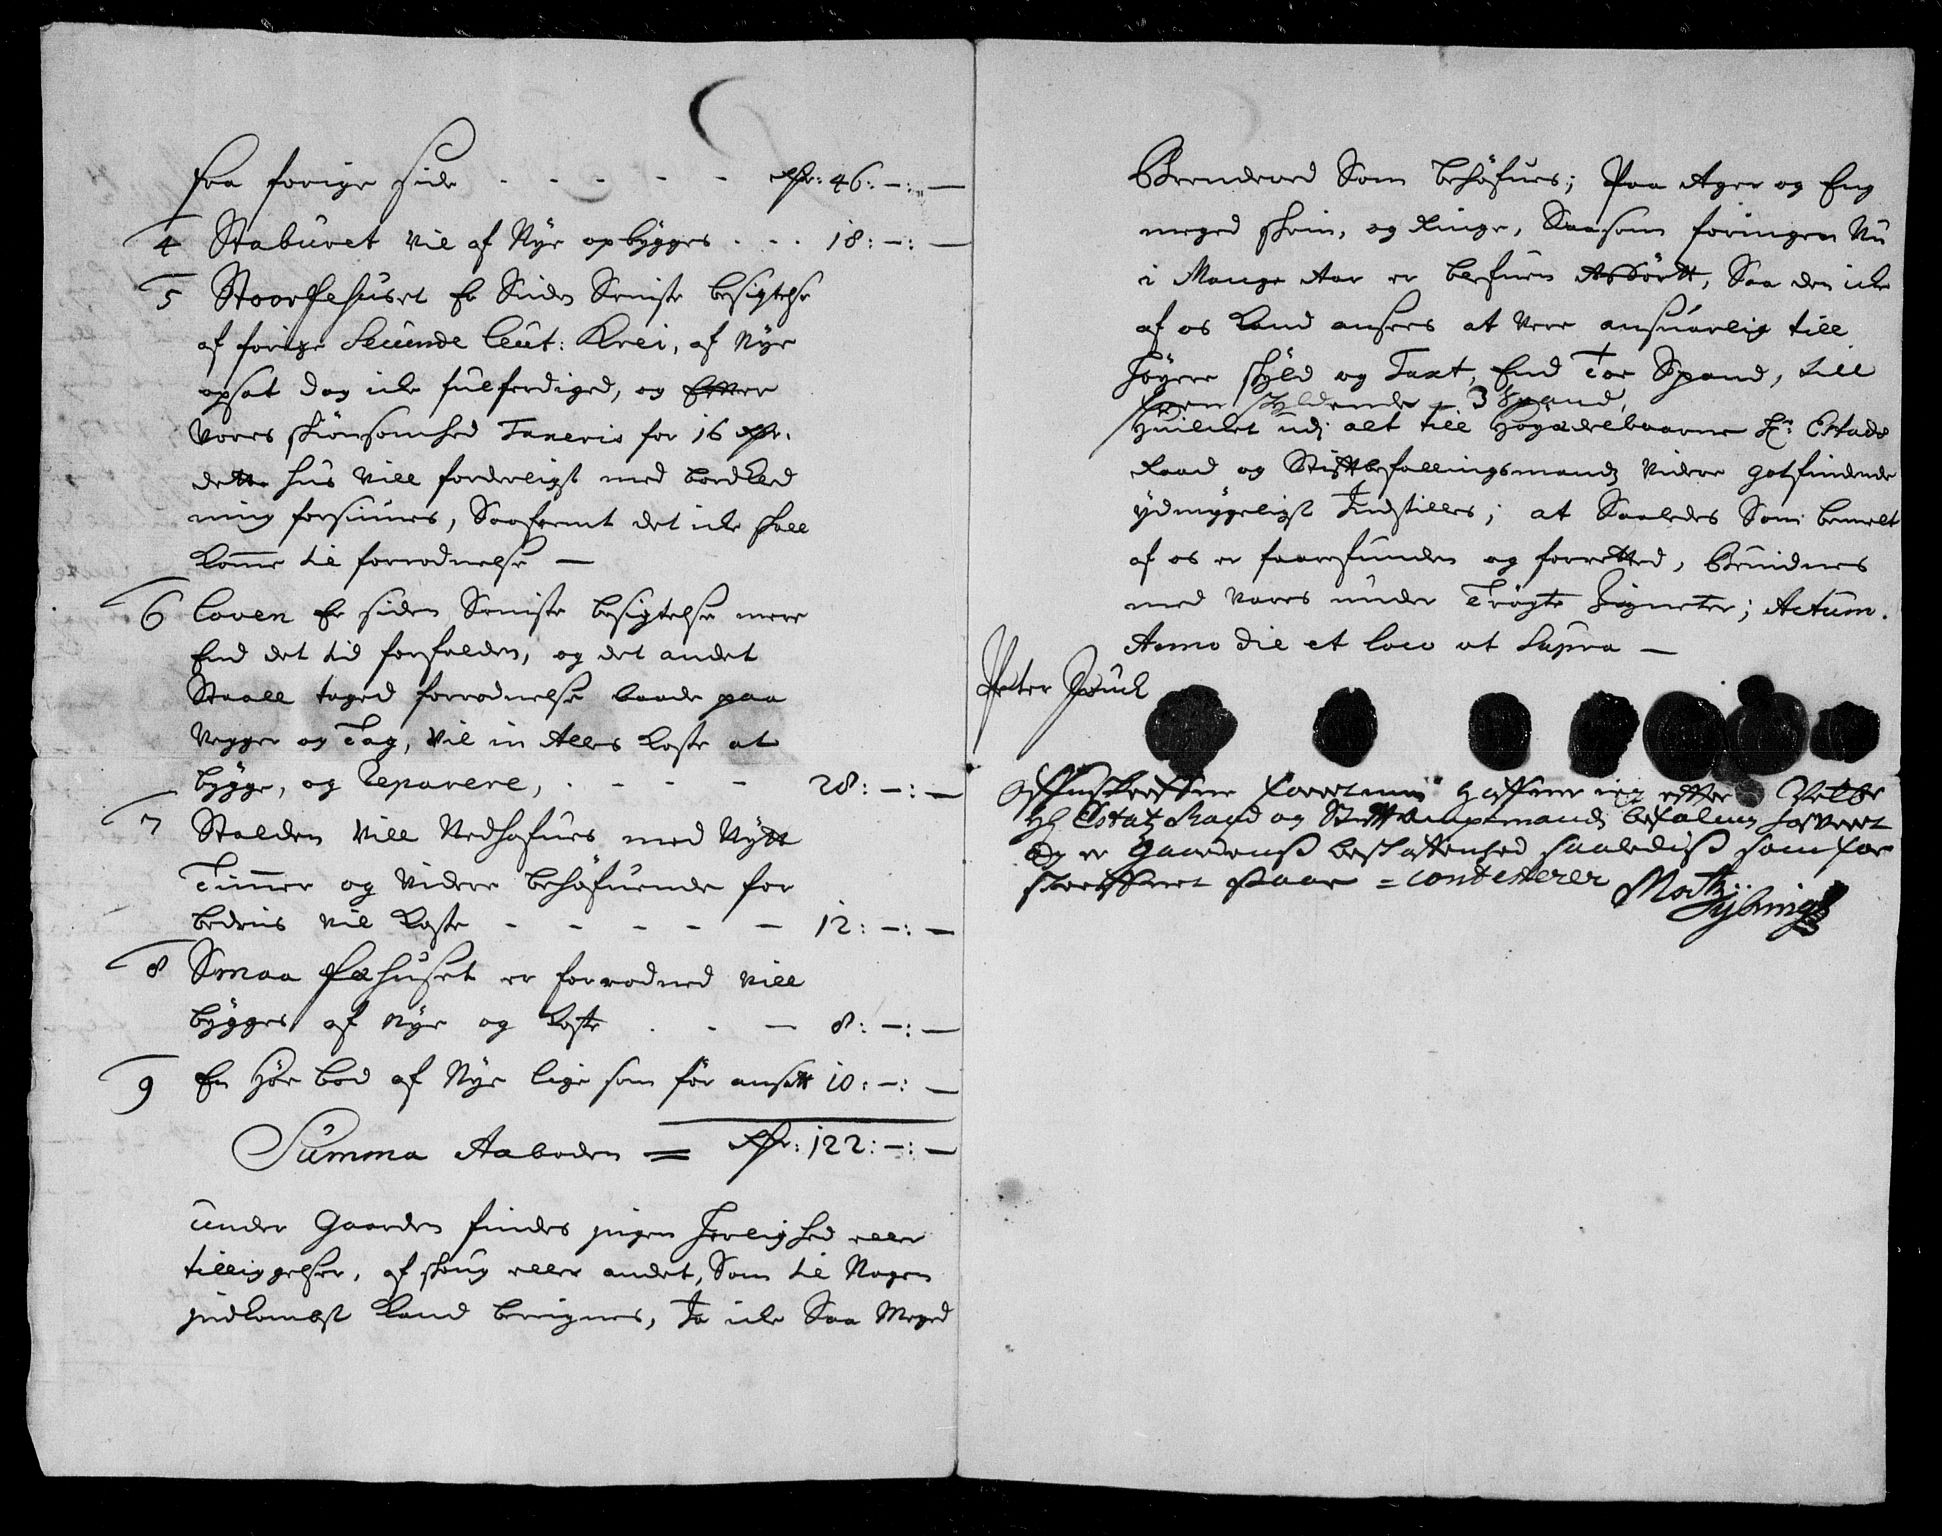 Fra forige side - - - - - - Rdr: 46:-:-
4 Staburet vil af Nye opbygges - - - 18:-:-
5 Stoorfehuset Er Siden Seniste besigtelse
af forige Secunde leut: Krei, af Nye
opsat dog icke fulferdiged, og Efter
vores skiønsomhed Taxeris for 16 Rdr.
dette huus vill forderligst med bordkled
ning forsiunes, Saafremt det icke skall
komme til forrodnelse —
6 Loven Er siden Seniste besigtelse mere
End det tid forfalden, og det andet
Staall taged forrodnelse baade paa
Vegger og Tag, Vil in Alles koste at
bygge, og Reparere, - - - - 28:-:-
7 Stalden Vill Vedhofues med Nytt
Timmer og Videre behøfuende for
bedris vil koste - - - - - 12:-:-
8 Smaa fæhuset er forrodned vill
bygges af Nye og koste - - - 8:-:-
9 En Høe bod af Nye lige som før ansatt 10:-:-
Summa Aaboden = Rdr: 122:-:-
under Gaarden findes jngen herlighed eller
tilliggelser, af skoug eller andet, Som til Nogen
jndkombst kand beregnes, Ja icke Saa Meged
Brendeved Som behøfues; Paa Ager og Eng
meged skrin, og Ringe, Saasom foringen Nu
i Mange Aar er blefuen Assørtt, Saa den icke
af os kand ansees at Vere ansuarlig till
høyere skyld og Taxt, End Toe Spand, till
forn skyldende - 3 Spand,
Huilcket udj alt till Høyædelbaarne Hr: Estads
Raad og Stiftbefallingsmandz Videre gotfindende
ydmygeligst Indstilles; at Saaledes Som bemelt
af os er faarefunden og forretted, Beuidnes
med Vores under Trøgte Zigneter; Actum.
Anno die et loco ut Supra —
Peter Juul
Offuskrefne forretning haffuer ieg efter Velbr
Hl Estatz Raad og Stifftambtmandz befaling hosveret
og er gaardens beskaffenhed saaledis som for
skreffuet staar = conditterer Morthen
Nysning